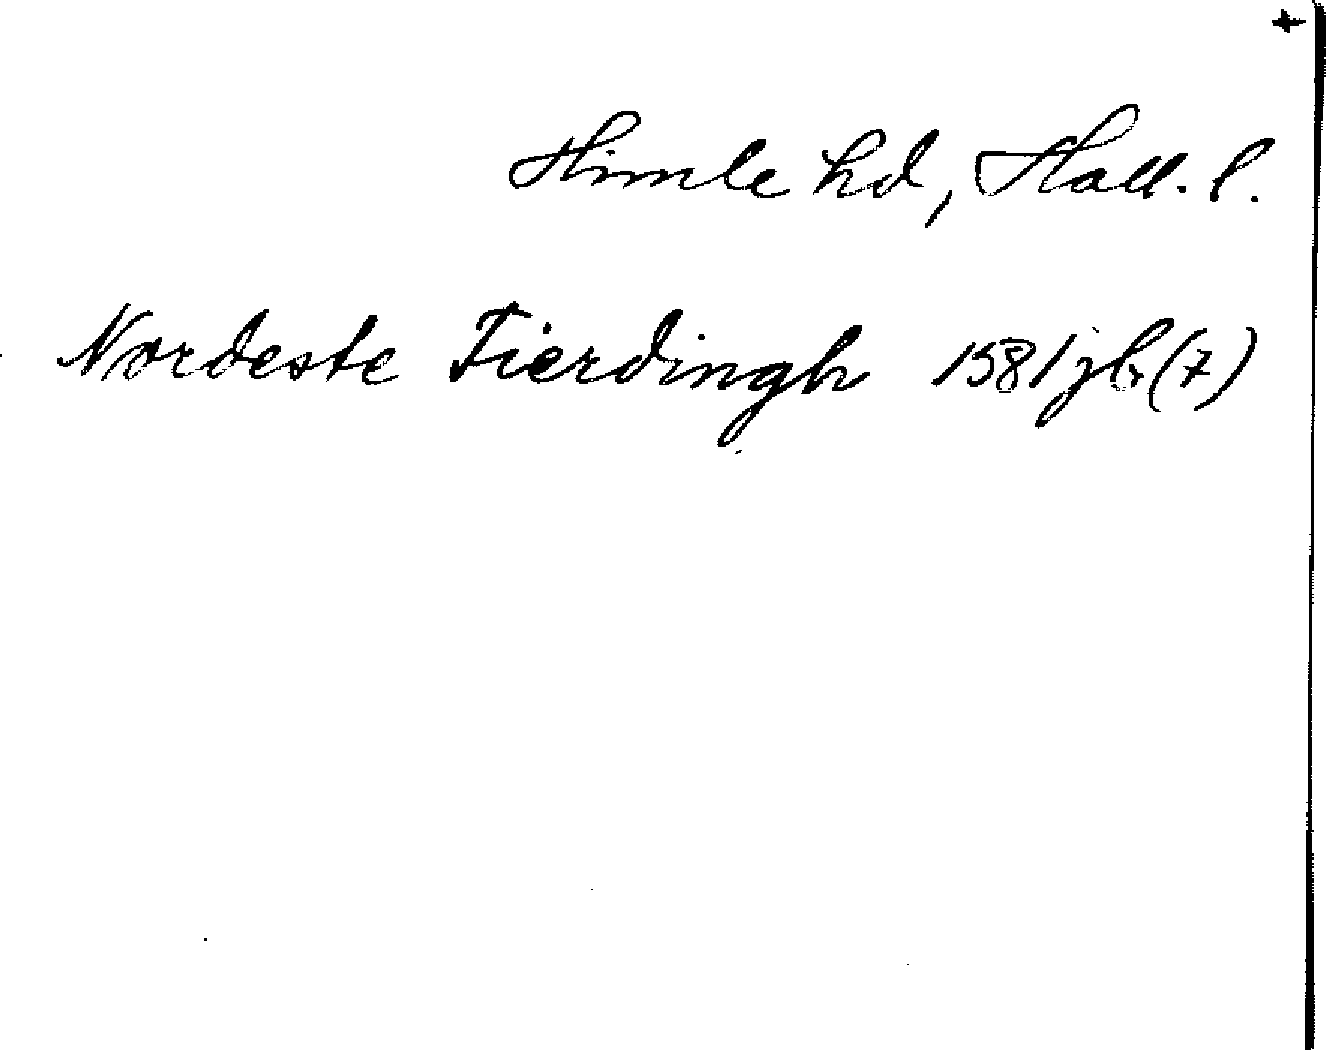 Himle hd, Hall. l.
Nordeste Fierdingh 1581 jb (7)